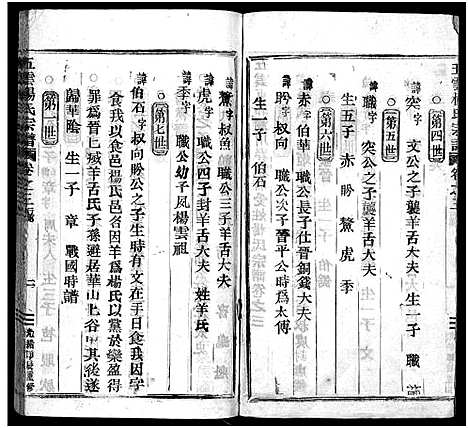 五雲楊氏宗譜 卷之三
第四世
諱突字 文公之子襲羊舌大夫 生一子 職
第五世
諱職字 突公之子襲羊舌大夫
生五子 赤 肸 鰲 虎 季
第六世
諱赤字 伯華 職公長子仕晉銅鍉大夫
諱肸字 叔向 職公次子晉平公時為太傅
生一子 伯石
諱鰲字 叔魚 職公三子羊舌大夫
諱虎字 職公四子封羊舌大夫 姓羊氏
諱季字 職公幼子夙楊雲祖
第七世
伯石 叔向肸公之子生時有文在手曰食我因字
食我以食邑楊氏邑因羊為楊氏以黨於欒盈得
罪為晉七滅羊舌氏子孫避居華山北谷甲其後遂
歸華陰 生一子 章 戰國時譜
第一世
五雲楊氏宗譜 卷之三
二
光緒